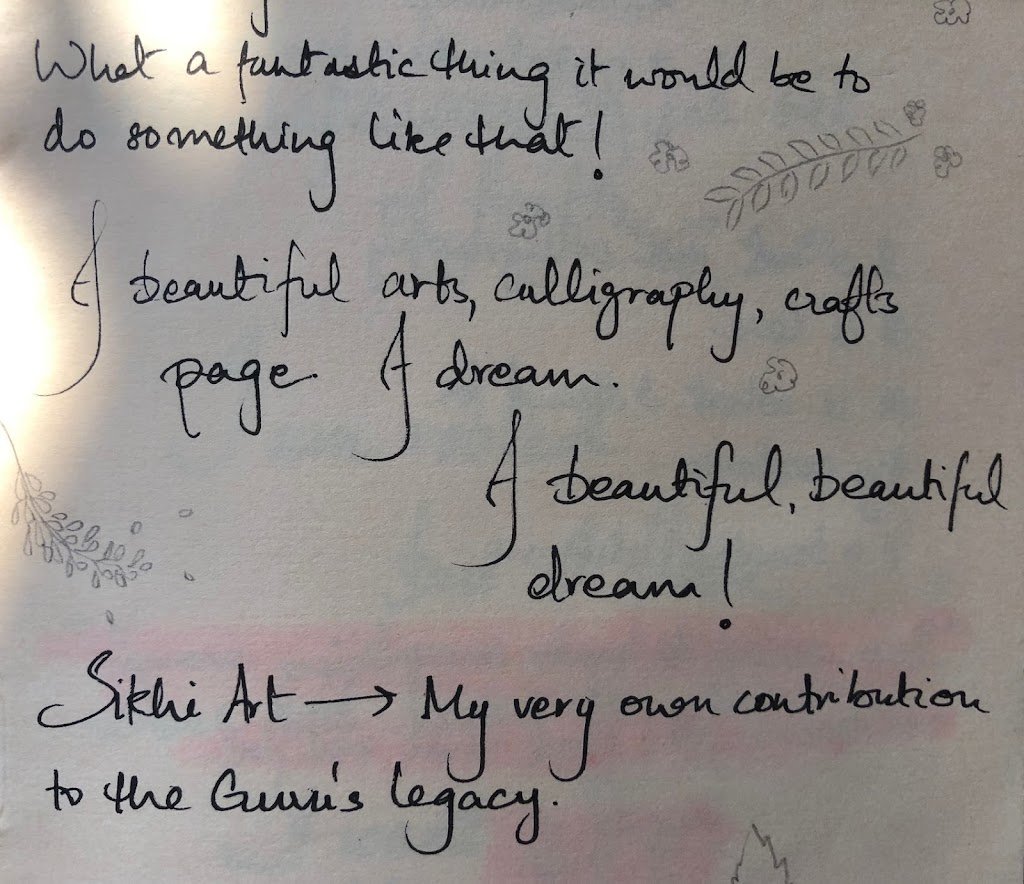 What a fantastic thing it would be to
do something like that!
A beautiful arts, calligraphy, crafts
page. A dream.
A beautiful, beautiful
dream!
Sikhi Art → My very own contribution
to the Guru's legacy.